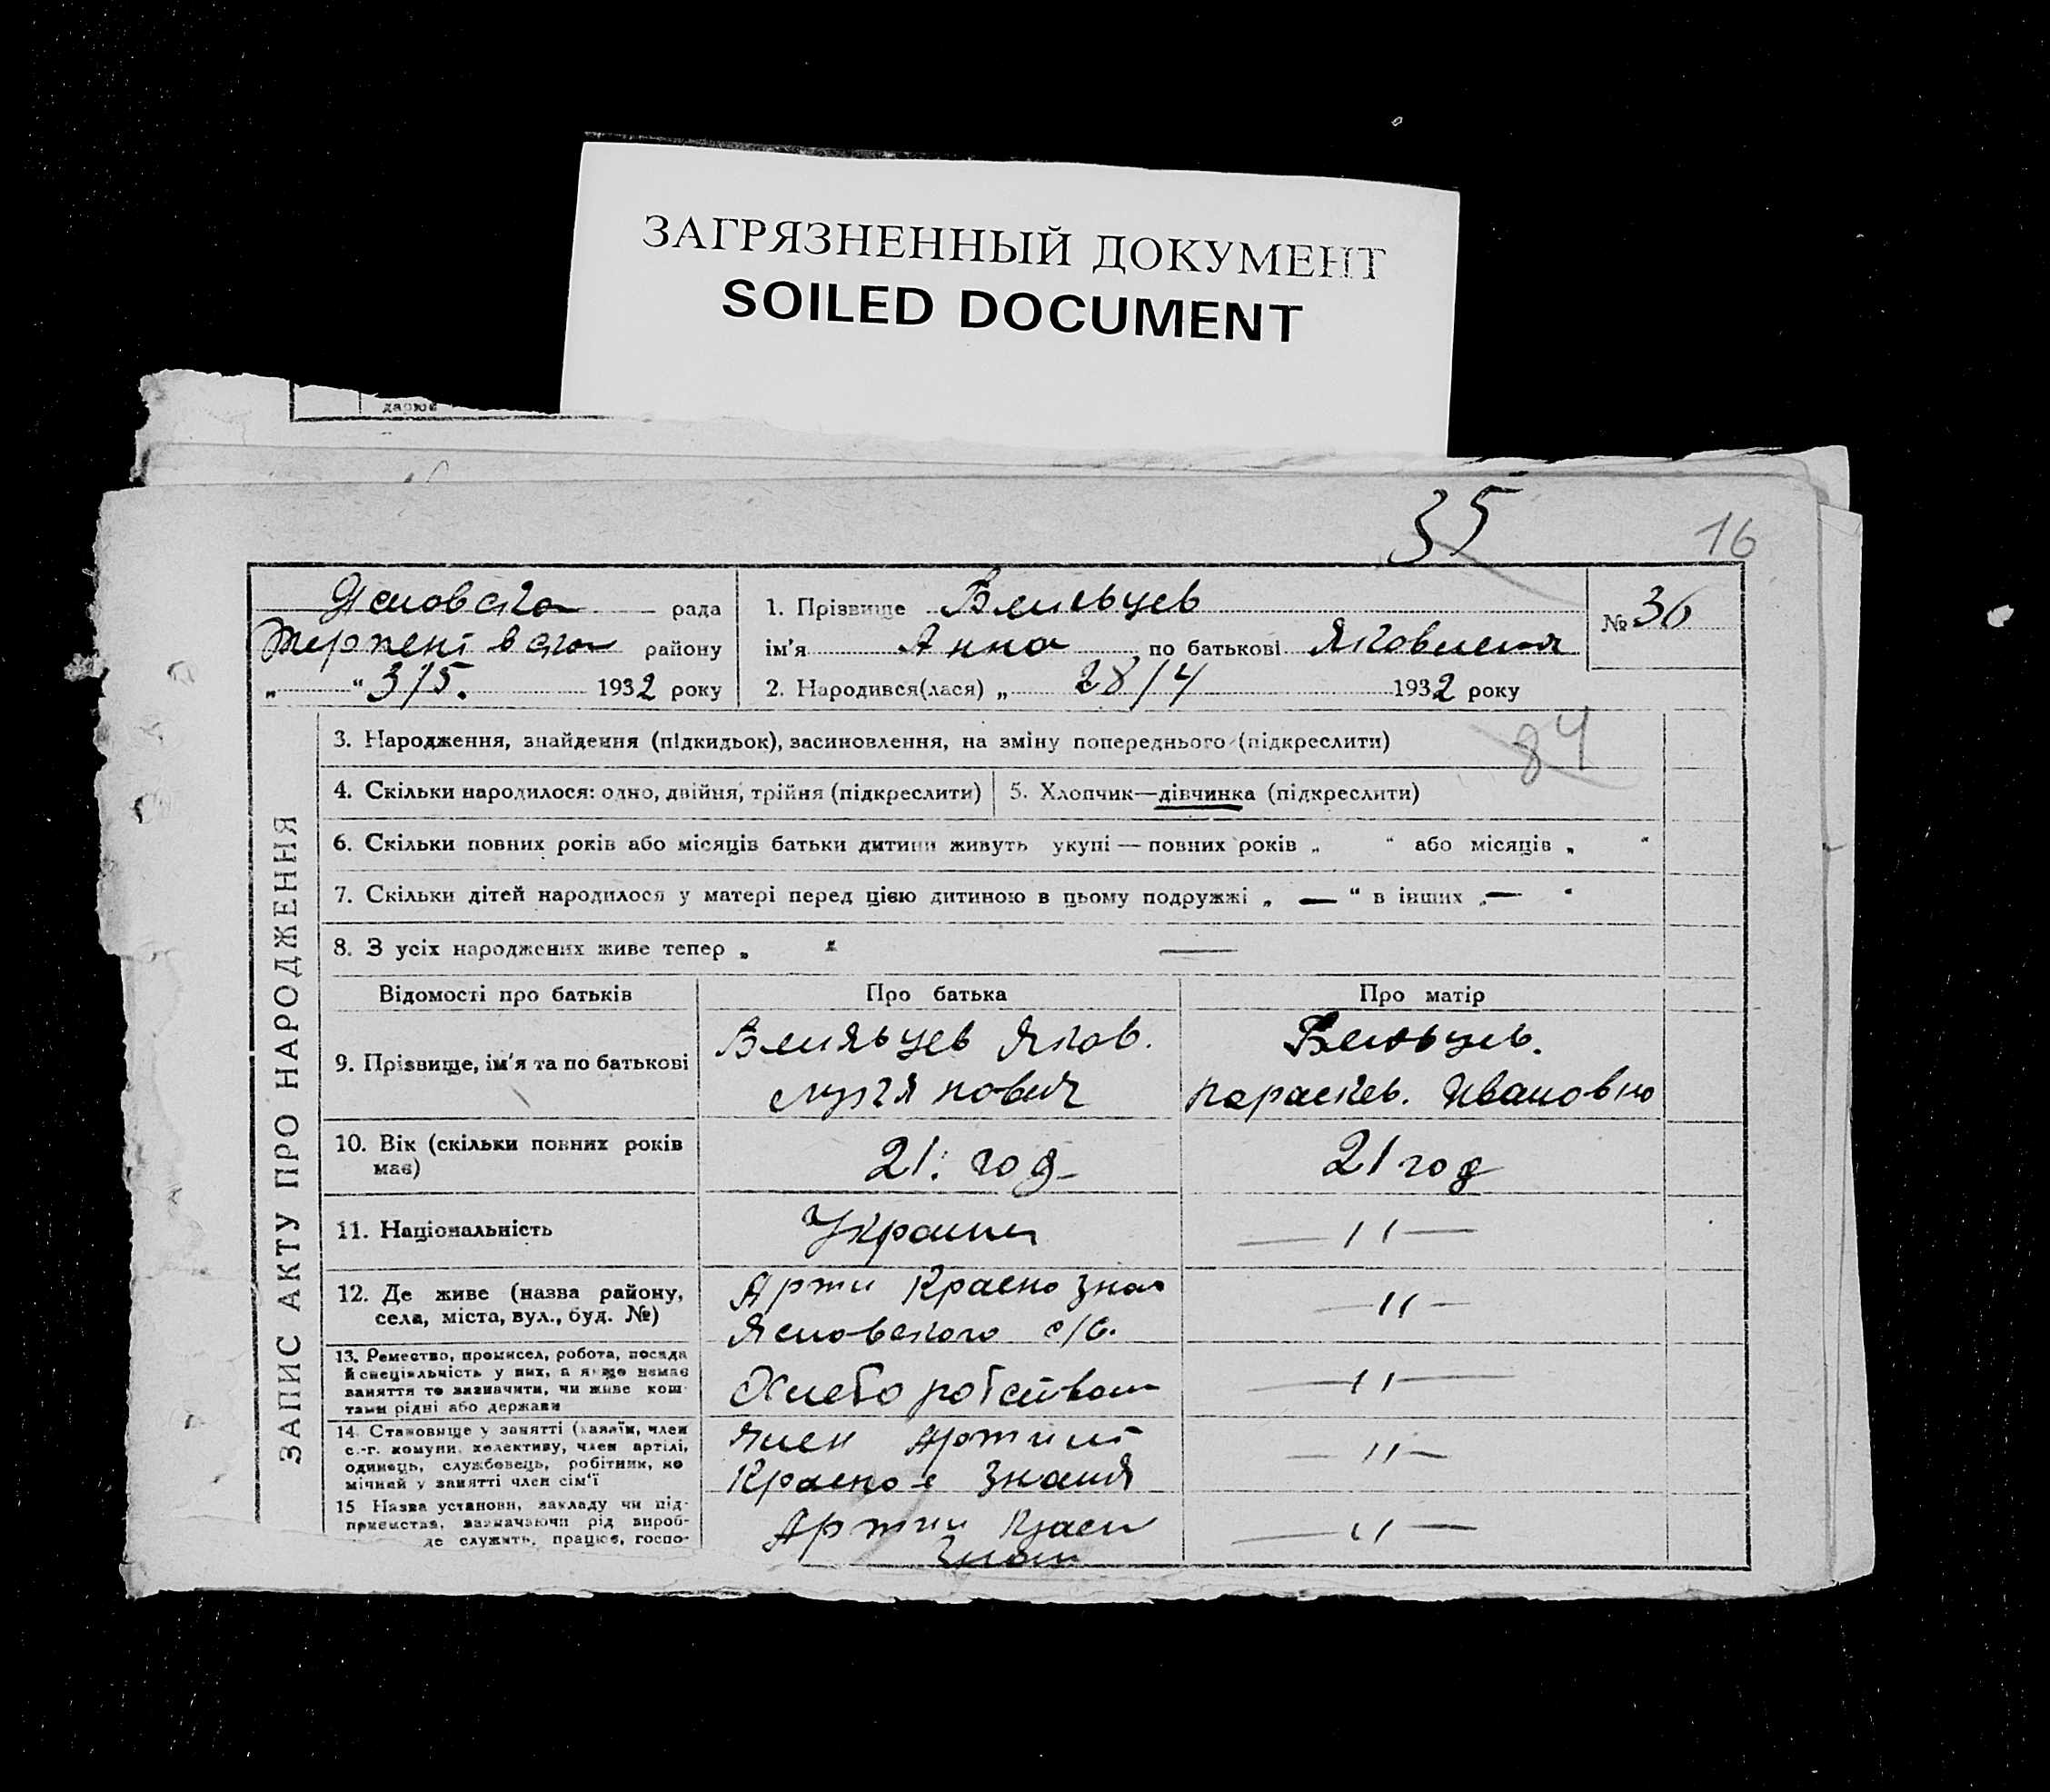 дарює
ЗАГРЯЗНЕННЫЙ ДОКУМЕНТ
SOILED DOCUMENT
35
16
рада
району
„ “ 3/5. 1932 року
1. Прізвище
ім'я Анна по батькові Яковлевня
2. Народився(лася) „ 28/4 1932 року
№ 36
84
ЗАПИС АКТУ ПРО НАРОДЖЕННЯ
3. Народження, знайдення (підкидьок), засиновлення, на зміну попереднього (підкреслити)
4. Скільки народилося: одно, двійня, трійня (підкреслити)
5. Хлопчик—дівчинка (підкреслити)
6. Скільки повних років або місяців батьки дитини живуть укупі — повних років „ “ або місяців „ “
7. Скільки дітей народилося у матері перед цією дитиною в цьому подружжі „ — “ в інших „ — “
8. З усіх народжених живе тепер „ “ —
Відомості про батьків
Про батька
Про матір
9. Прізвище, ім'я та по батькові
Яков.
Параскев. Ивановно
10. Вік (скільки повних років
має)
21. год
21 год
11. Національність
Украин
— 〃 —
12. Де живе (назва району,
села, міста, вул., буд. №)
Арти Красно Зная
с/с.
— 〃 —
13. Ремество, промисел, робота, посада
й спеціяльність у них, а якщо немає
заняття то зазначити, чи живе кош-
тами рідні або держави
Хлебо
— 〃 —
14. Становище у занятті (хазяїн, член
с.-г. комуни, колективу, член артілі,
одинець, службовець, робітник, по
мічний у занятті член сім'ї
Член Артили
Красное Знамя
— 〃 —
15 Назва установи, закладу чи під-
приємства, зазначаючи рід вироб-
де служить, працює, госпо-
Артили Красн
Знам
— 〃 —